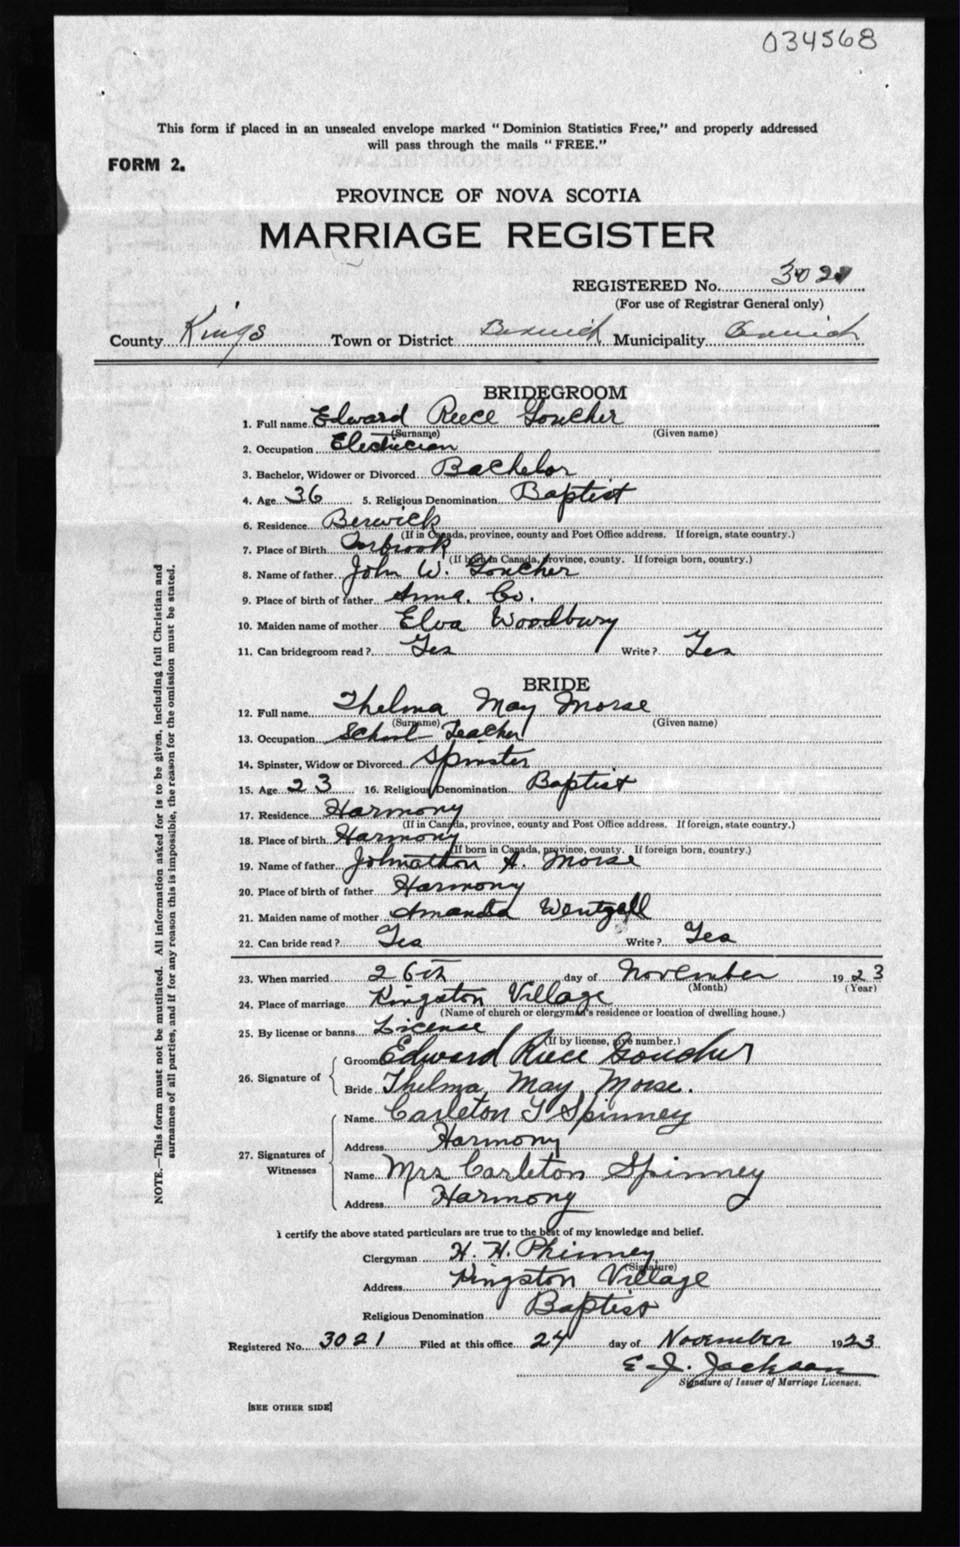 034568
This form if placed in an unsealed envelope marked "Dominion Statistics Free," and properly addressed
will pass through the mails "FREE."
FORM 2.
PROVINCE OF NOVA SCOTIA
MARRIAGE REGISTER
REGISTERED No. 3021
(For use of Registrar General only)
County Kings Town or District Berwick Municipality Berwick
BRIDEGROOM
1. Full name Edward Reece Goucher
(Surname) (Given name)
2. Occupation Electrician
3. Bachelor, Widower or Divorced Bachelor
4. Age 36 5. Religious Denomination Baptist
6. Residence Berwick
(If in Canada, province, county and Post Office address. If foreign, state country.)
7. Place of Birth Torbrook
(If born in Canada, province, county. If foreign born, country.)
8. Name of father John W. Goucher
9. Place of birth of father Anna. Co.
10. Maiden name of mother Elva Woodbury
11. Can bridegroom read? Yes Write? Yes
BRIDE
12. Full name Thelma May Morse
(Surname) (Given name)
13. Occupation School Teacher
14. Spinster, Widow or Divorced Spinster
15. Age 23 16. Religious Denomination Baptist
17. Residence Harmony
(If in Canada, province, county and Post Office address. If foreign, state country.)
18. Place of birth Harmony
(If born in Canada, province, county. If foreign born, country.)
19. Name of father Johnathon A. Morse
20. Place of birth of father Harmony
21. Maiden name of mother Amanda Wentzell
22. Can bride read? Yes Write? Yes
23. When married 26th day of November 1923
(Month) (Year)
24. Place of marriage Kingston Village
(Name of church or clergyman's residence or location of dwelling house.)
25. By license or banns License
(If by license, give number.)
26. Signature of
Groom Edward Reece Goucher
Bride Thelma May Morse.
27. Signatures of Witnesses
Name Carleton T Spinney
Address Harmony
Name Mrs Carleton Spinney
Address Harmony
I certify the above stated particulars are true to the best of my knowledge and belief.
Clergyman H. H. Phinney
(Signature)
Address Kingston Village
Religious Denomination Baptist
Registered No. 3021 Filed at this office 24 day of November 1923
E. J. Jackson
Signature of Issuer of Marriage Licenses.
[SEE OTHER SIDE]
NOTE.—This form must not be mutilated. All information asked for is to be given, including full Christian and
surnames of all parties, and if for any reason this is impossible, the reason for the omission must be stated.